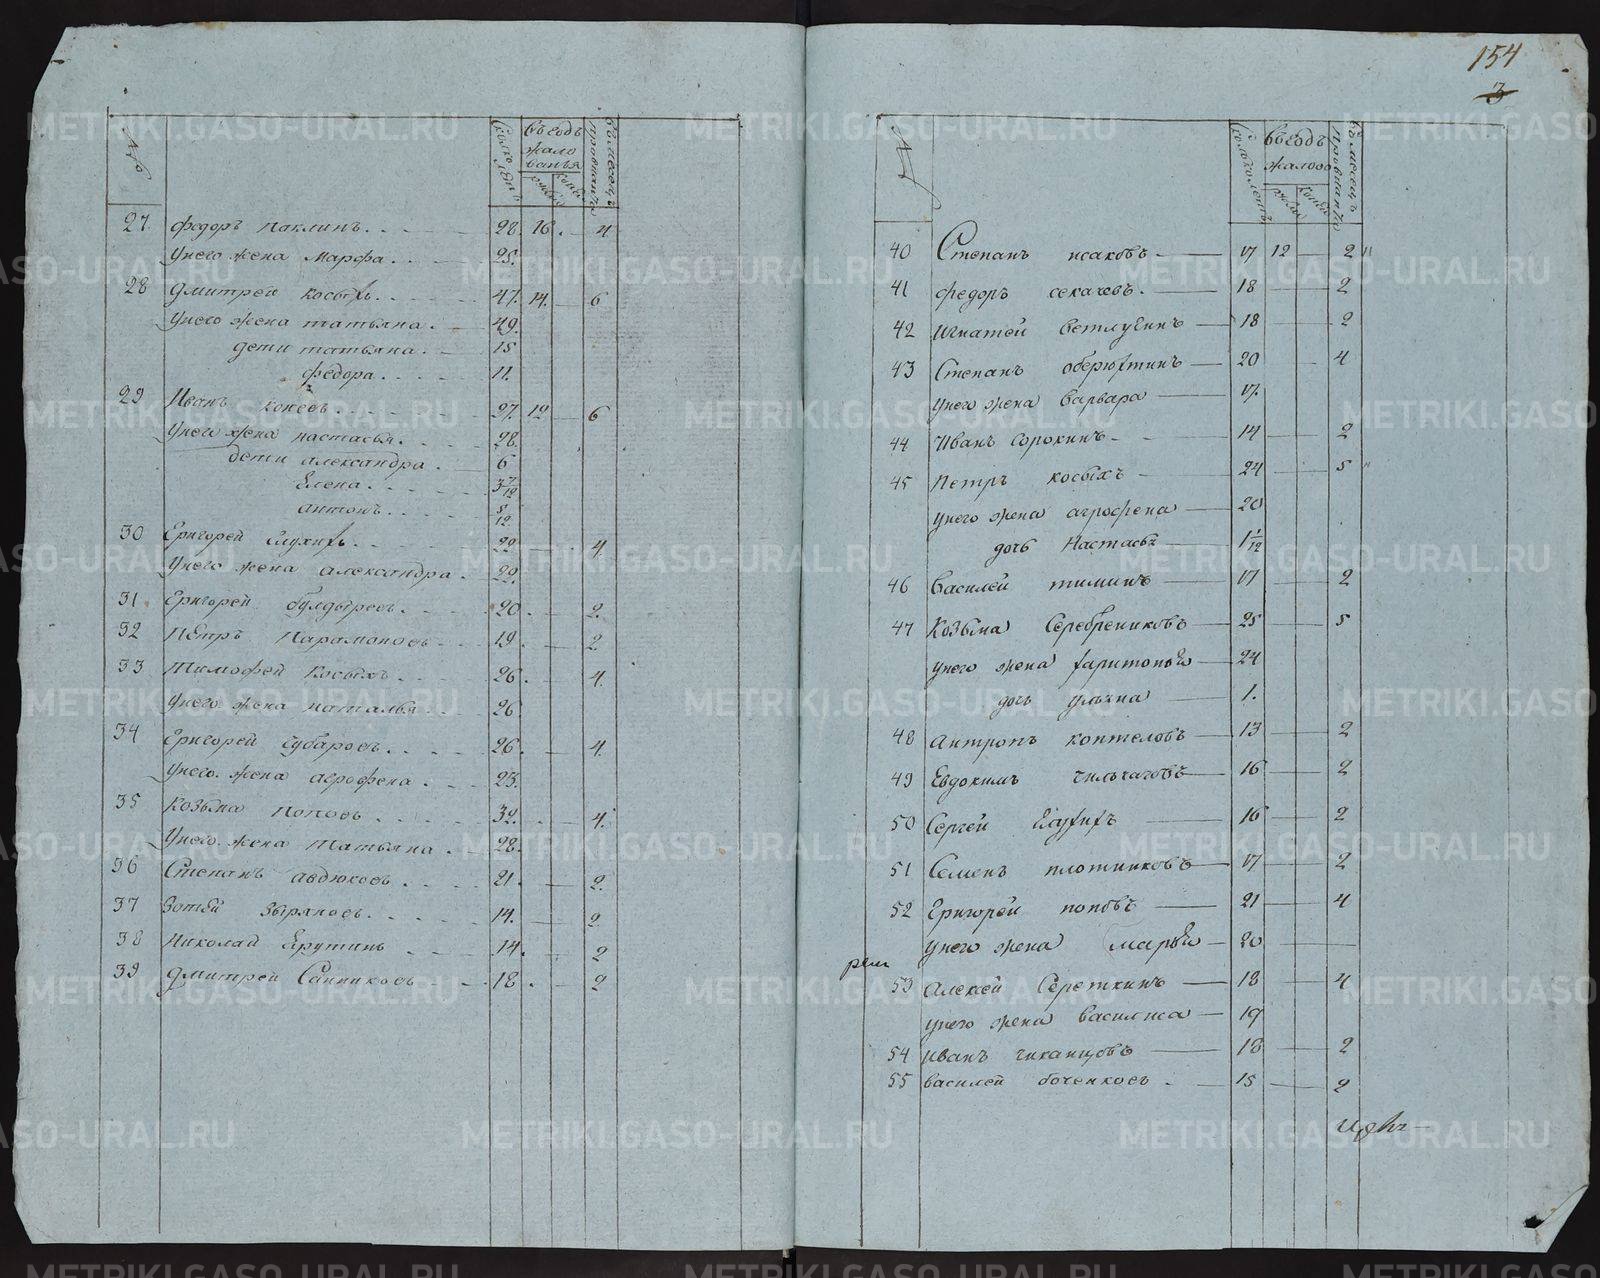 №
Сколко летъ
Въ годъ жалованья
рубли
копей
Въ месецъ провианта
27. Федоръ паклинъ. 28. 16. 4
У него жена Марфа. 25.
28 Дмитрей косыхъ. 47. 14. 6
У него жена татьяна. 49.
дети татьяна. 15
федора. 11.
29 Иванъ коневъ. 27. 12 6
У него жена настасья. 28.
дети александра. 6
Елена. 3 7/12
антонъ. 8/12
30 Григорей глухихъ. 22 4.
У него жена александра. 22.
31 Григорей булдыревъ. 20. 2.
32 Петръ Парамоновъ 19. 2
33 Тимофей косыхъ. 26. 4.
У него жена наталья 26
34 Григорей Губаровъ. 26. 4.
У него жена агрофена. 23.
35 Козьма поповъ 32. 4.
У него жена татьяна. 28.
36 Степанъ авдюковъ. 21. 2.
37 Зотей зыряновъ. 14. 2
38 Николай Крутинъ 14. 2
39 Дмитрей Санниковъ 18. 2
154
3
№
Сколко летъ
Въ годъ жалова
рубли
копей
Въ месецъ провианта
40 Степанъ исаковъ 17 12 2 "
41 Федоръ секачевъ. 18 2
42 Игнатей ветлугинъ 18 2
43 Степанъ оберюхтинъ 20 4
У него жена варвара 17.
44 Иванъ сорокинъ. 14 2
45 Петръ косыхъ 24 5 "
У него жена агрофена 20
дочь Настасья 1 1/12
46 Василей тиминъ 17 2
47 Козьма Серебрениковъ 25 5
У него жена харитонья 24
дочь ульяна 1.
48 Антропъ коптеловъ 13 2
49 Евдокимъ 16 2
50 Сергей Глухихъ 16 2
51 Семенъ плотниковъ 17 2
52 Григорей поповъ 21 4
У него жена Марья 20
53 Алексей Середкинъ 18 4
У него жена василиса 19
54 Иванъ чиканцовъ 18 2
55 Василей боченковъ. 15 2
METRIKI.GASO-URAL.RU